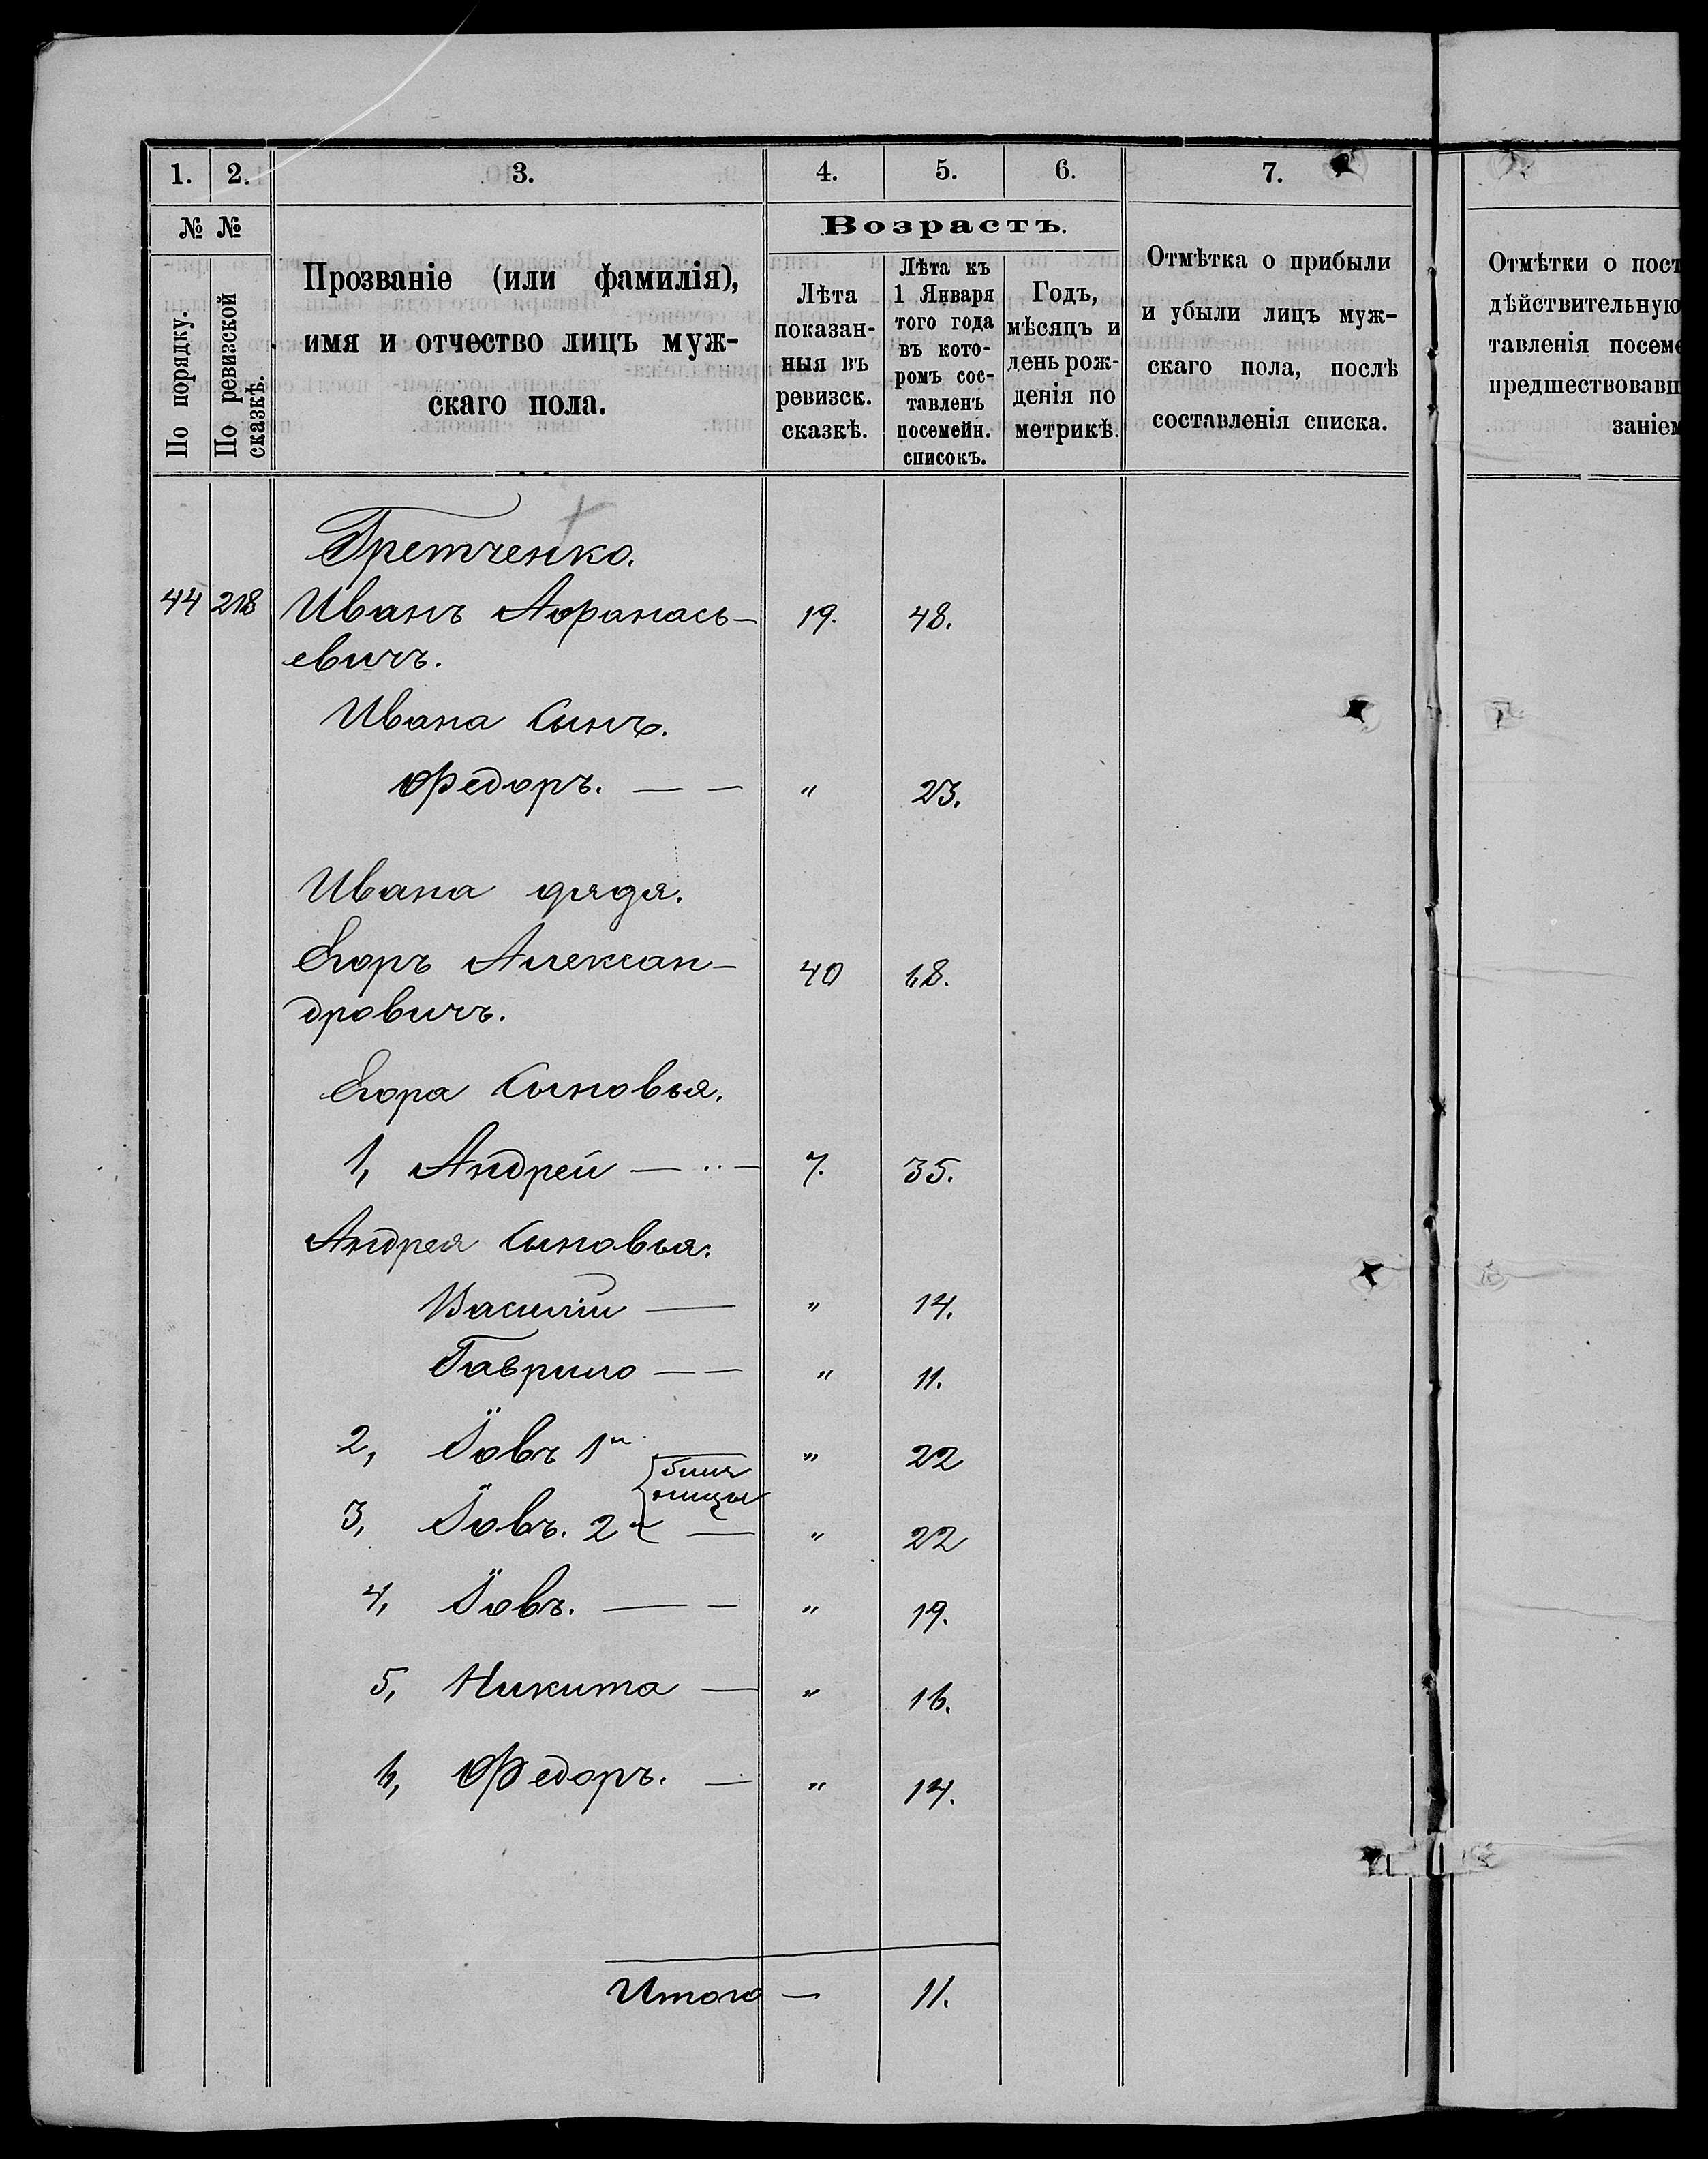 1. 2. 3. 4. 5. 6. 7.
№ №
По порядку.
По ревизской сказкѣ.
Прозваніе (или фамилія),
имя и отчество лицъ муж-
скаго пола.
Возрастъ.
Лѣта
показан-
ныя въ
ревизск.
сказкѣ.
Лѣта къ
1 Января
того года
въ кото-
ромъ сос-
тавленъ
посемейн.
списокъ.
Годъ,
мѣсяцъ и
день рож-
денія по
метрикѣ.
Отмѣтка о прибыли
и убыли лицъ муж-
скаго пола, послѣ
составленія списка.
Отмѣтки о пост
дѣйствительную
тавленія посеме
предшествовавш
заніем
Гретченко.
44 218 Иванъ Афанась- 19. 48.
евичъ.
Ивана сынъ.
Федоръ. — — " 23.
Ивана дядя.
Егоръ Алексан- 40 68.
дровичъ.
Егора сыновья.
1, Андрей — .. — 7. 35.
Андрея сыновья.
Василій — " 14.
Гаврило — — " 11.
2, Іовъ 1й — " 22
близ
ницы
3, Іовъ. 2й — " 22
4, Іовъ. — — " 19.
5, Никита — " 16.
6, Федоръ. — " 14.
Итого — 11.